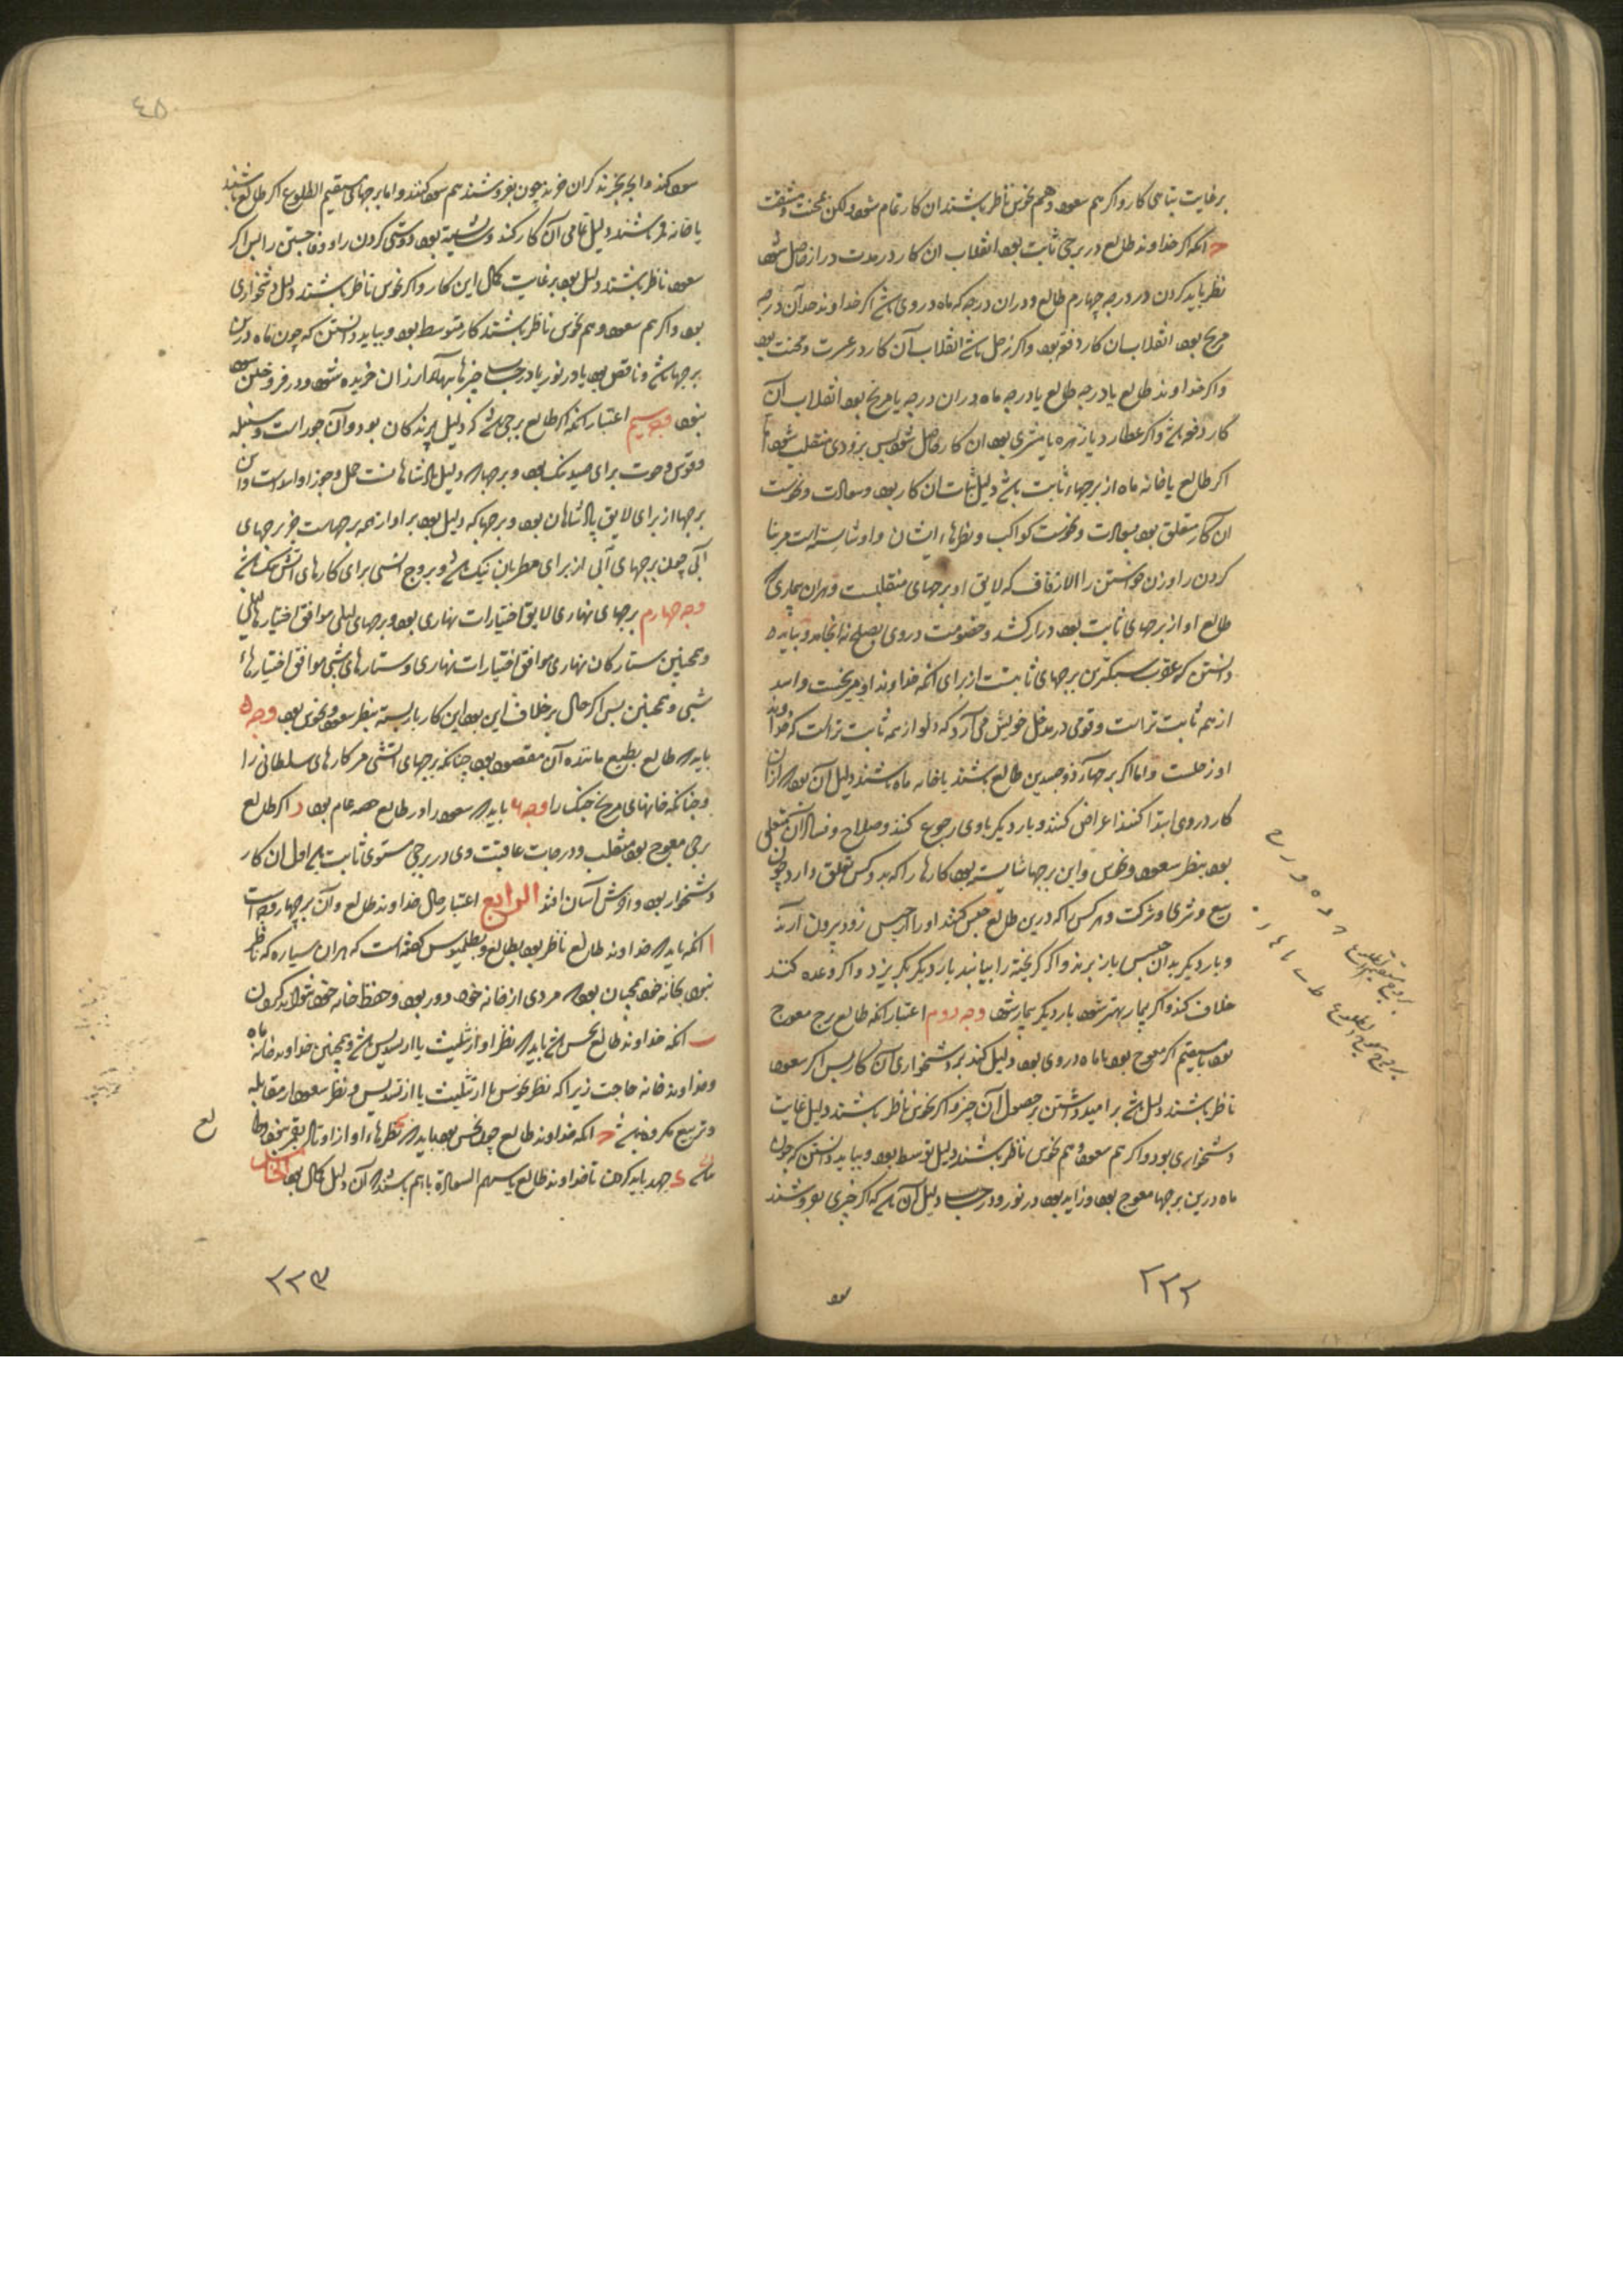 بر غایت تباهی کار و اکر هم سعود و هم نحوس ناظر باشند ان کار تمام شود ولکن بمحنت و مشقت
ح انکه اکر خداوند طالع در برجی ثابت بود انقلاب ان کار در مدت دراز حاصل شود
نظر باید کردن در درجه چهارم طالع و دران درجه که ماه در وی باشد اکر خداوند حد آن درجه
مریخ بود انقلاب ان کار دفعه بود و اکر زحل باشد انقلاب آن کار در عسرت و محنت بود
و اکر خداوند طالع یا درجه طالع یا درجه ماه دران درجه یا مریخ بود انقلاب آن
کار دفعه باشد و اکر عطارد یا زهره یا مشتری بود ان کار حاصل شود پس بزودی منقلب شود
اکر طالع یا خانه ماه از برجهاء ثابت باشد دلیل ثبات ان کار بود و سعادت و نحوست
آن کار متعلق بود بسعادت و نحوست کواکب و نظرهاء ایشان و او شایسته است مر بنا
کردن را و زن خواستن را الا زفاف که لایق او برجهای منقلبست و هران بیماری که
طالع او از برجهای ثابت بود دراز کشد و خصومت در وی بصلح نه انجامد و بباید
دانستن که عقرب سبکترین برجهای ثابتست از برای انکه خداوند او مریخست و اسد
از همه ثابت تر است و قومی در مدخل خویش می آرد که دلو از همه ثابت تر است که خداوند
او زحلست و اما اکر برجهاء ذو جسدین طالع باشند یا خانه ماه باشند دلیل آن بود که ازان
کار در وی ابتدا کنند اعراض کنند و بار دیکر باوی رجوع کنند و صلاح و فساد ان متعلق
بود بنظر سعود و نحوس و این برجها شایسته بود کارها را که بدو کس تعلق دارد چون
بیع و شری و شرکت و هر کس را که درین طالع حبس کنند او را از حبس زود بیرون آرند
و بار دیکر بدان حبس باز برند و اکر کریخته را بیابند بار دیکر بکریزد و اکر وعده کنند
خلاف کند و اکر بیمار بهتر شود بار دیکر بیمار شود وجه دوم اعتبار انکه طالع برج معوج
بود یا مستقیم اکر معوج بود یا ماه در وی بود دلیل کند بر دشخواری آن کار پس اکر سعود
ناظر باشند دلیل باشد بر امید داشتن بر حصول آن چیز و اکر نحوس ناظر باشند دلیل غایت
دشخواری بود و اکر هم سعود و هم نحوس ناظر باشند دلیل توسط بود و بباید دانستن که چون
ماه درین برجها معوج بود و زاید بود در نور و در حساب دلیل آن باشد که اکر چیزی بفروشند
بروج مستقیم الطلوع
بروج معوج الطلوع
۲۲۲
۴۵
سود کند و انچه بخرند کران خرند چون بفروشند هم سود کنند و اما برجهای مستقیم الطلوع اکر طالع باشند
یا خانه قمر باشند دلیل تمامی آن کار کند و شایسته بود دوستی کردن را و وفا جستن را پس اکر
سعود ناظر باشند دلیل بود بر غایت کمال این کار و اکر نحوس ناظر باشند دلیل دشخواری
بود و اکر هم سعود و هم نحوس ناظر باشند کار متوسط بود و بباید دانستن که چون ماه درین
برجها باشد و ناقص بود یا در نور یا در حساب چیزها بهاء ارزان خریده شود و در فروختن سود
نبود وجه سیم اعتبار انکه اکر طالع برجی باشد که دلیل پرندکان بود و آن جوزا است و سنبله
و قوس و حوت برای صید نیک بود و برجها که دلیل پادشاهانست حمل و جوزا و اسد است و این
برجها از برای لایق پادشاهان بود و برجها که دلیل بود بر آواز همه برجهاست جز برجهای
آبی چون برجهای آبی از برای مطربان نیک باشد و بروج اتشی برای کارهای اتش نیک باشد
وجه چهارم برجهای نهاری لایق اختیارات نهاری بود و برجهای لیلی موافق اختیارهاء لیلی
و همچنین ستارکان نهاری موافق اختیارات نهاری و ستارهای شبی موافق اختیارهاء
شبی و همچنین پس اکر حال بر خلاف این بود این کار باز بسته بنظر سعود و نحوس بود وجه ۵
باید که طالع بطبع ماننده آن مقصود بود چنانکه برجهای اتشی مر کارهای سلطانی را
و چنانکه خانهای مریخ جنک را وجه ۶ باید که سعود را در طالع حصه عام بود ز اکر طالع
برجی معوج بود منقلب و درجات عاقبت وی در برجی مستوی ثابت باشد اول ان کار
دشخوار بود و اخرش آسان افتد الرابع اعتبار حال خداوند طالع و آن بر چهار وجه است
ا انکه باید که خداوند طالع ناظر بود بطالع و بطلمیوس کفته است که هران سیاره که ناظر
نبود بخانه خود همچنان بود که مردی از خانه خود دور بود و حفظ خانه خود نتواند کردن
ب انکه خداوند طالع نحس باشد باید که نظر او از تثلیث یا از تسدیس باشد و همچنین خداوند خانه ماه
و خداوند خانه حاجت زیرا که نظر نحوس یا از تثلیث یا از تسدیس و نظر سعود از مقابله
و تربیع مکروه نباشد ح انکه خداوند طالع چون نحس بود باید که نظرهاء او از اوتاد بقمر نبود
باشد د جهد باید کردن تا خداوند طالع یا سهم السعادة باهم باشند که آن دلیل کمال بود الخامس
۲۲۳